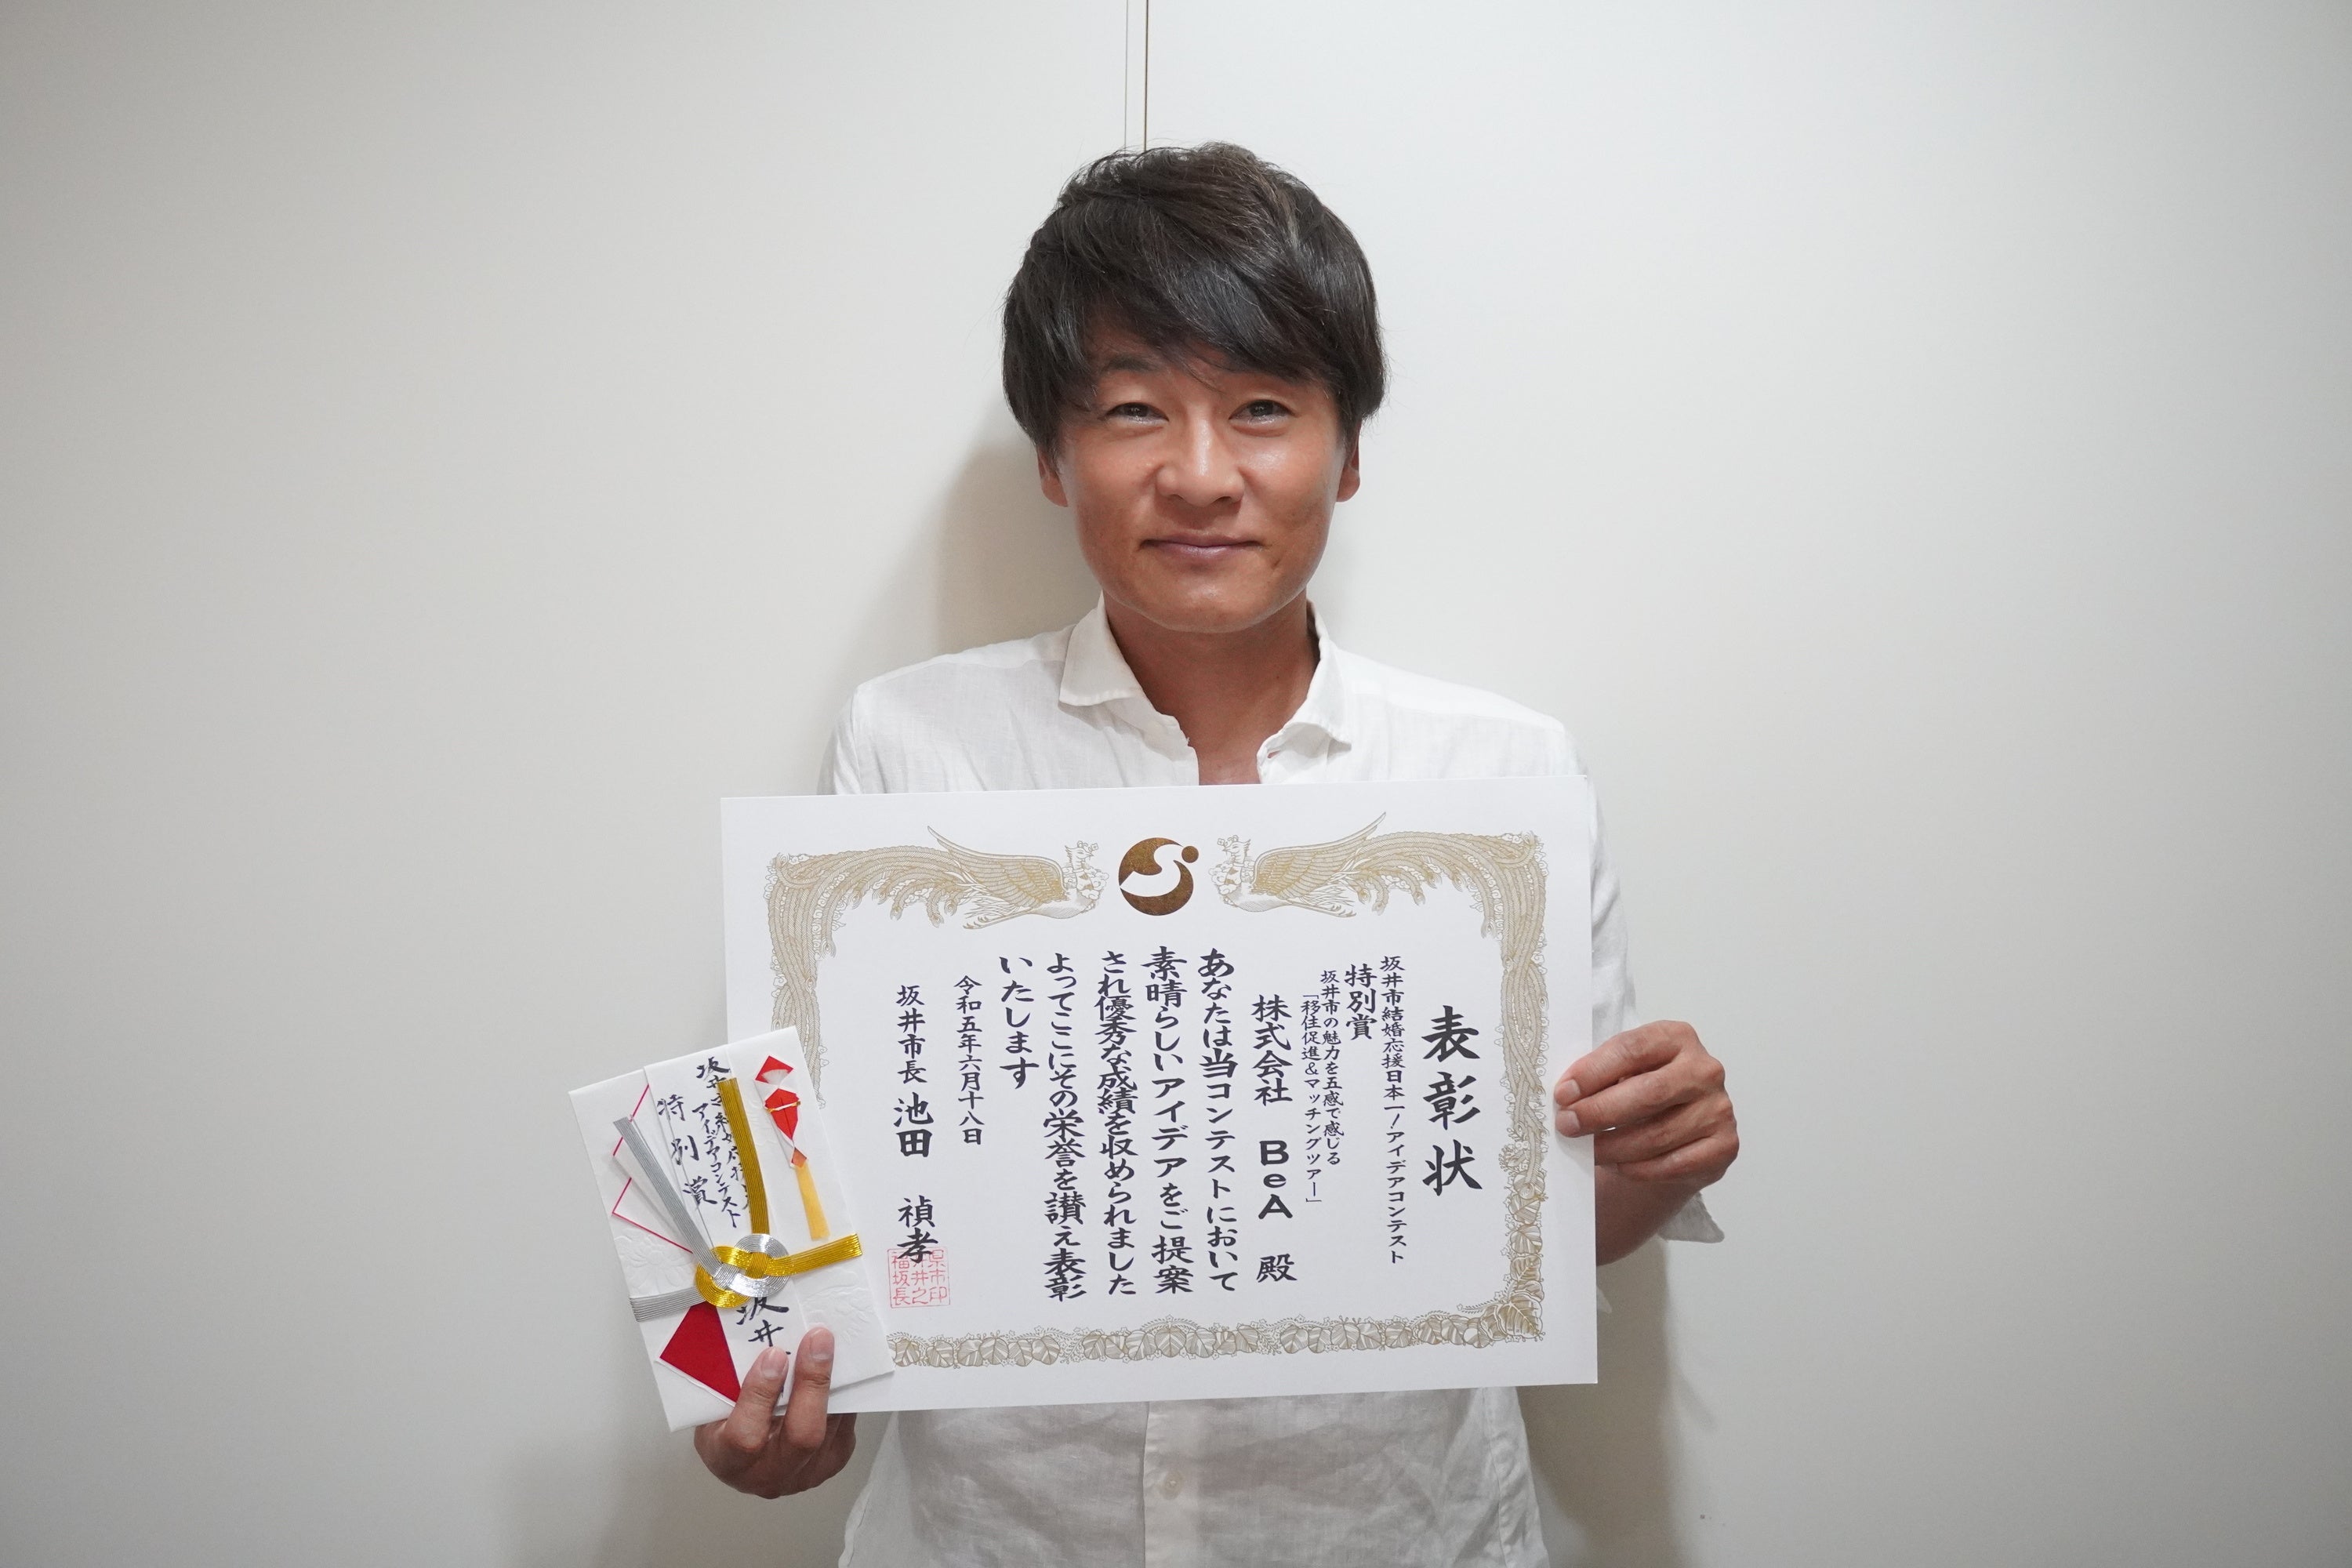 表彰状
坂井市結婚応援日本一!アイデアコンテスト
特別賞
坂井市の魅力を五感で感じる
「移住促進&マッチングツアー」
株式会社 BeA 殿
あなたは当コンテストにおいて
素晴らしいアイデアをご提案
され優秀な成績を収められました
よってここにその栄誉を讃え表彰
いたします
令和五年六月十八日
坂井市長 池田 禎孝
アイデアコンテスト
特別賞
坂井